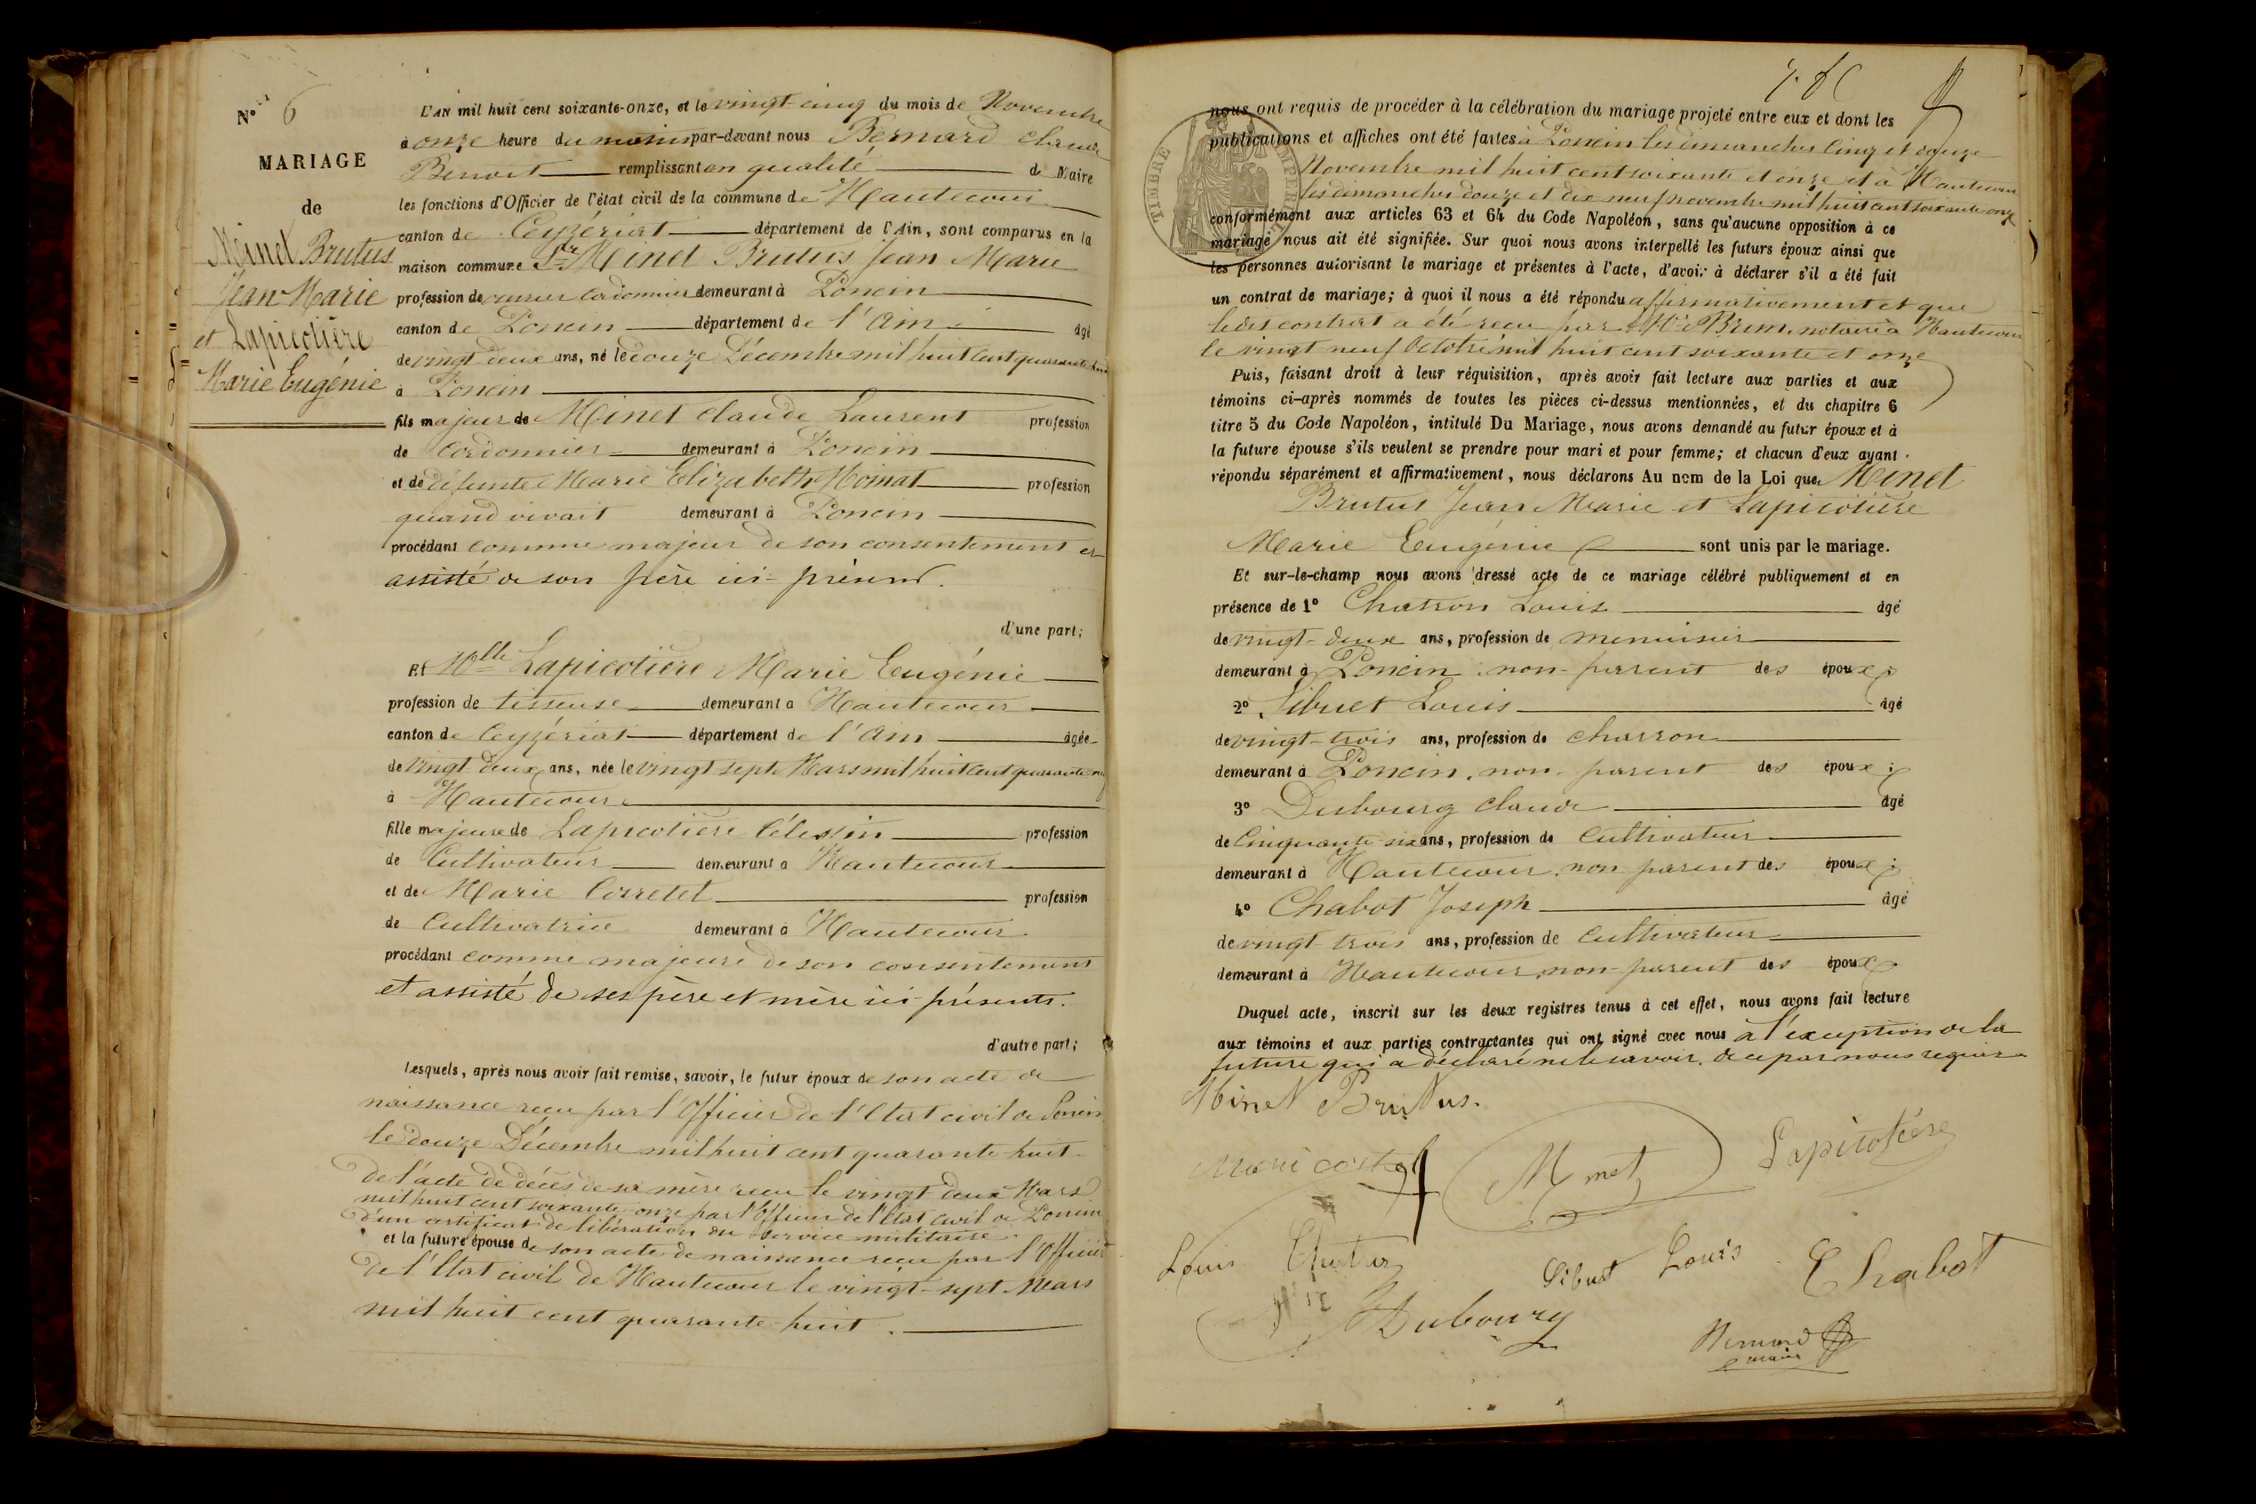 N° 6
MARIAGE
de
Minet Brutus
Jean Marie
et Lapicotière
Marie Eugénie
L'AN mil huit cent soixante-onze, et le vingt-cinq du mois de Novembre
à onze heure du matin par-devant nous Bernard Claude
Benoit remplissant en qualité de Maire
les fonctions d'Officier de l'état civil de la commune de Hautecour
canton de Ceyzériat département de l'Ain, sont comparus en la
maison commune Sr Minet Brutus Jean Marie
profession de cordonnier demeurant à Poncin
canton de Poncin département de l'Ain âgé
de vingt deux ans, né le douze Décembre mil huit cent quarante huit
à Poncin
fils majeur de Minet Claude Laurent profession
de Cordonnier demeurant à Poncin
et de défunte Marie Elizabeth profession
quand vivait demeurant à Poncin
procédant comme majeur de son consentement et
assisté de son père ici-présent.
d'une part;
Et Mlle Lapicotière Marie Eugénie
profession de tisseuse demeurant à Hautecour
canton de Ceyzériat département de l'Ain âgée
de vingt deux ans, née le vingt sept Mars mil huit cent quarante
à Hautecour
fille majeure de Lapicotière Célestin profession
de Cultivateur demeurant à Hautecour
et de Marie Corretel profession
de Cultivatrice demeurant à Hautecour
procédant comme majeure de son consentement
et assisté de ses père et mère ici-présents.
d'autre part;
Lesquels, après nous avoir fait remise, savoir, le futur époux de son acte de
naissance reçu par l'Officier de l'Etat civil de Poncin
le douze Décembre mil huit cent quarante-huit
de l'acte de décès de sa mère reçu le vingt deux Mars
mil huit cent soixante-onze par l'officier de l'Etat civil de Poncin
d'un certificat de libération du service militaire.
et la future épouse de son acte de naissance reçu par l'Officier
de l'Etat civil de Hautecour le vingt-sept Mars
mil huit cent quarante-huit.
TIMBRE IMPERIAL
nous ont requis de procéder à la célébration du mariage projeté entre eux et dont les
publications et affiches ont été faites à Poncin les dimanches cinq et douze
Novembre mil huit cent soixante et onze et à Hautecour
les dimanches douze et dix neuf novembre mil huit cent soixante onze
conformément aux articles 63 et 64 du Code Napoléon, sans qu'aucune opposition à ce
mariage nous ait été signifiée. Sur quoi nous avons interpellé les futurs époux ainsi que
les personnes autorisant le mariage et présentes à l'acte, d'avoir à déclarer s'il a été fait
un contrat de mariage; à quoi il nous a été répondu affirmativement et que
le dit contrat a été reçu par Me Brun, notaire à Hautecour
le vingt neuf Octobre mil huit cent soixante et onze
Puis, faisant droit à leur réquisition, après avoir fait lecture aux parties et aux
témoins ci-après nommés de toutes les pièces ci-dessus mentionnées, et du chapitre 6
titre 5 du Code Napoléon, intitulé Du Mariage, nous avons demandé au futur époux et à
la future épouse s'ils veulent se prendre pour mari et pour femme; et chacun d'eux ayant
répondu séparément et affirmativement, nous déclarons Au nom de la Loi que Minet
Brutus Jean Marie et Lapicotière
Marie Eugénie sont unis par le mariage.
Et sur-le-champ nous avons dressé acte de ce mariage célébré publiquement et en
présence de 1° Chatron Louis âgé
de vingt-deux ans, profession de menuisier
demeurant à Poncin non-parent des époux;
2° Sibuet Louis âgé
de vingt-trois ans, profession de charron
demeurant à Poncin, non-parent des époux;
3° Dubourg Claude âgé
de Cinquante six ans, profession de Cultivateur
demeurant à Hautecour, non parent des époux;
4° Chabot Joseph âgé
de vingt-trois ans, profession de Cultivateur
demeurant à Hautecour non-parent des époux
Duquel acte, inscrit sur les deux registres tenus à cet effet, nous avons fait lecture
aux témoins et aux parties contractantes qui ont signé avec nous à l'exception de la
future qui a déclaré ne le savoir, de ce par nous requise
Minet Brutus.
Minet Lapicotière
Louis
Sibuet Louis Chabot
Dubourg
Bernard
maire